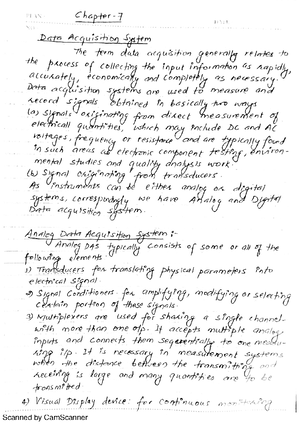 Chapter-7
Data Acquisition System
The term data acquisition generally relates to
the process of collecting the input information as rapidly,
accurately, economically and completely as necessary.
Data acquisition systems are used to measure and
record signals obtained in basically two ways
(a) Signals originating from direct measurement of
electrical quantities, which may include DC and AC
voltages, frequency or resistance and are typically found
in such areas as electronic component testing, environ-
mental studies and quality analysis work.
(b) Signal originating from transducers.
As instruments can be either analog or digital
systems, correspondingly we have Analog and Digital
Data acquisition System.
Analog Data Acquisition System :-
Analog DAS typically consists of some or all of the
following elements.
1) Transducers for translating physical parameters into
electrical signal.
2) Signal conditioners for amplifying, modifying or selecting
certain portion of those signals.
3) Multiplexers are used for sharing a single channel
with more than one o/p. It accepts multiple analog
inputs and connects them sequentially to one measu-
ring i/p. It is necessary in measurement systems
when the distance between the transmitting and
receiving is large and many quantities are to be
transmitted
4) Visual Display device: for continuous monitoring
Scanned by CamScanner